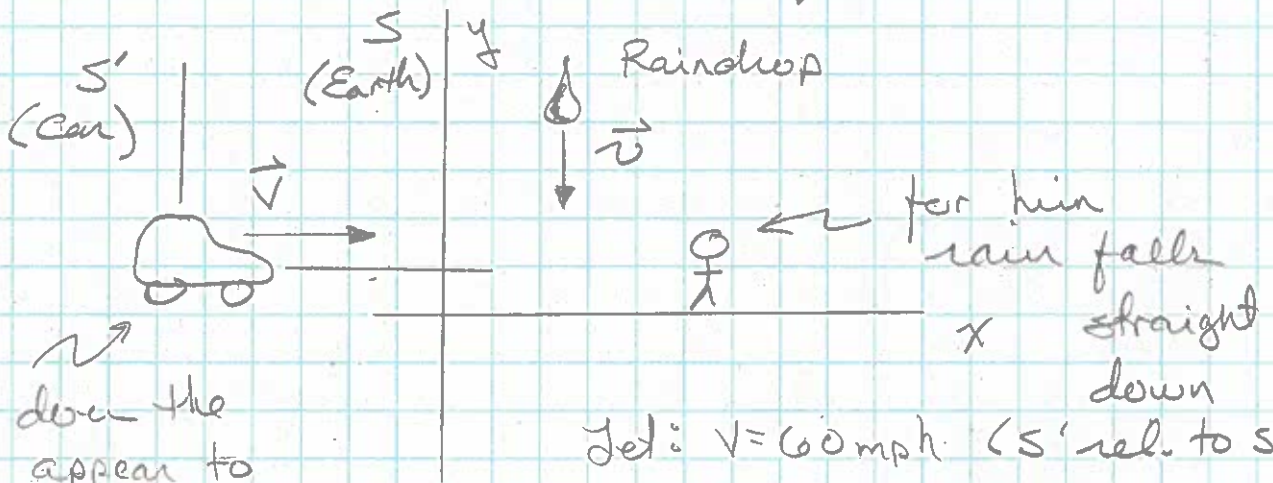 S'
(Car)
V
S
(Earth)
y
Raindrop
v
for him
rain falls
straight
down
x
does the
appear to
Let: V=60mph. (S' rel. to S